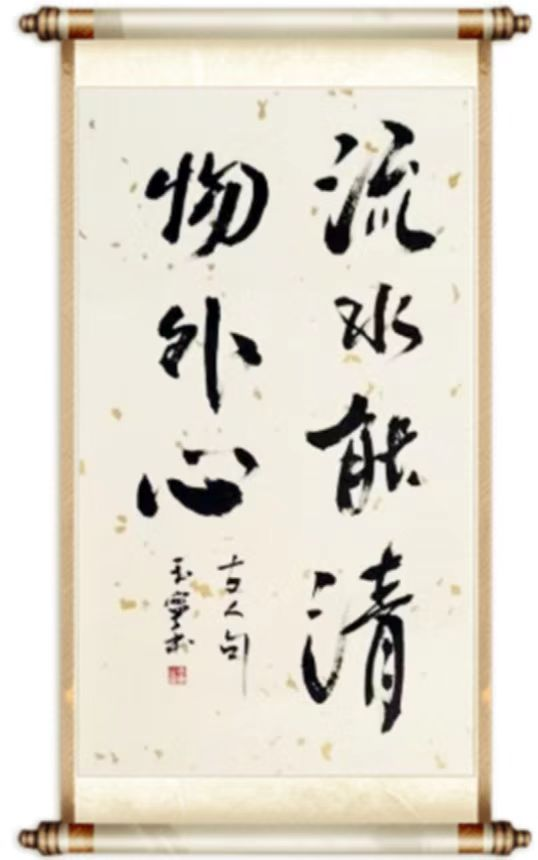 流水能清
物外心
古人句
玉宁书